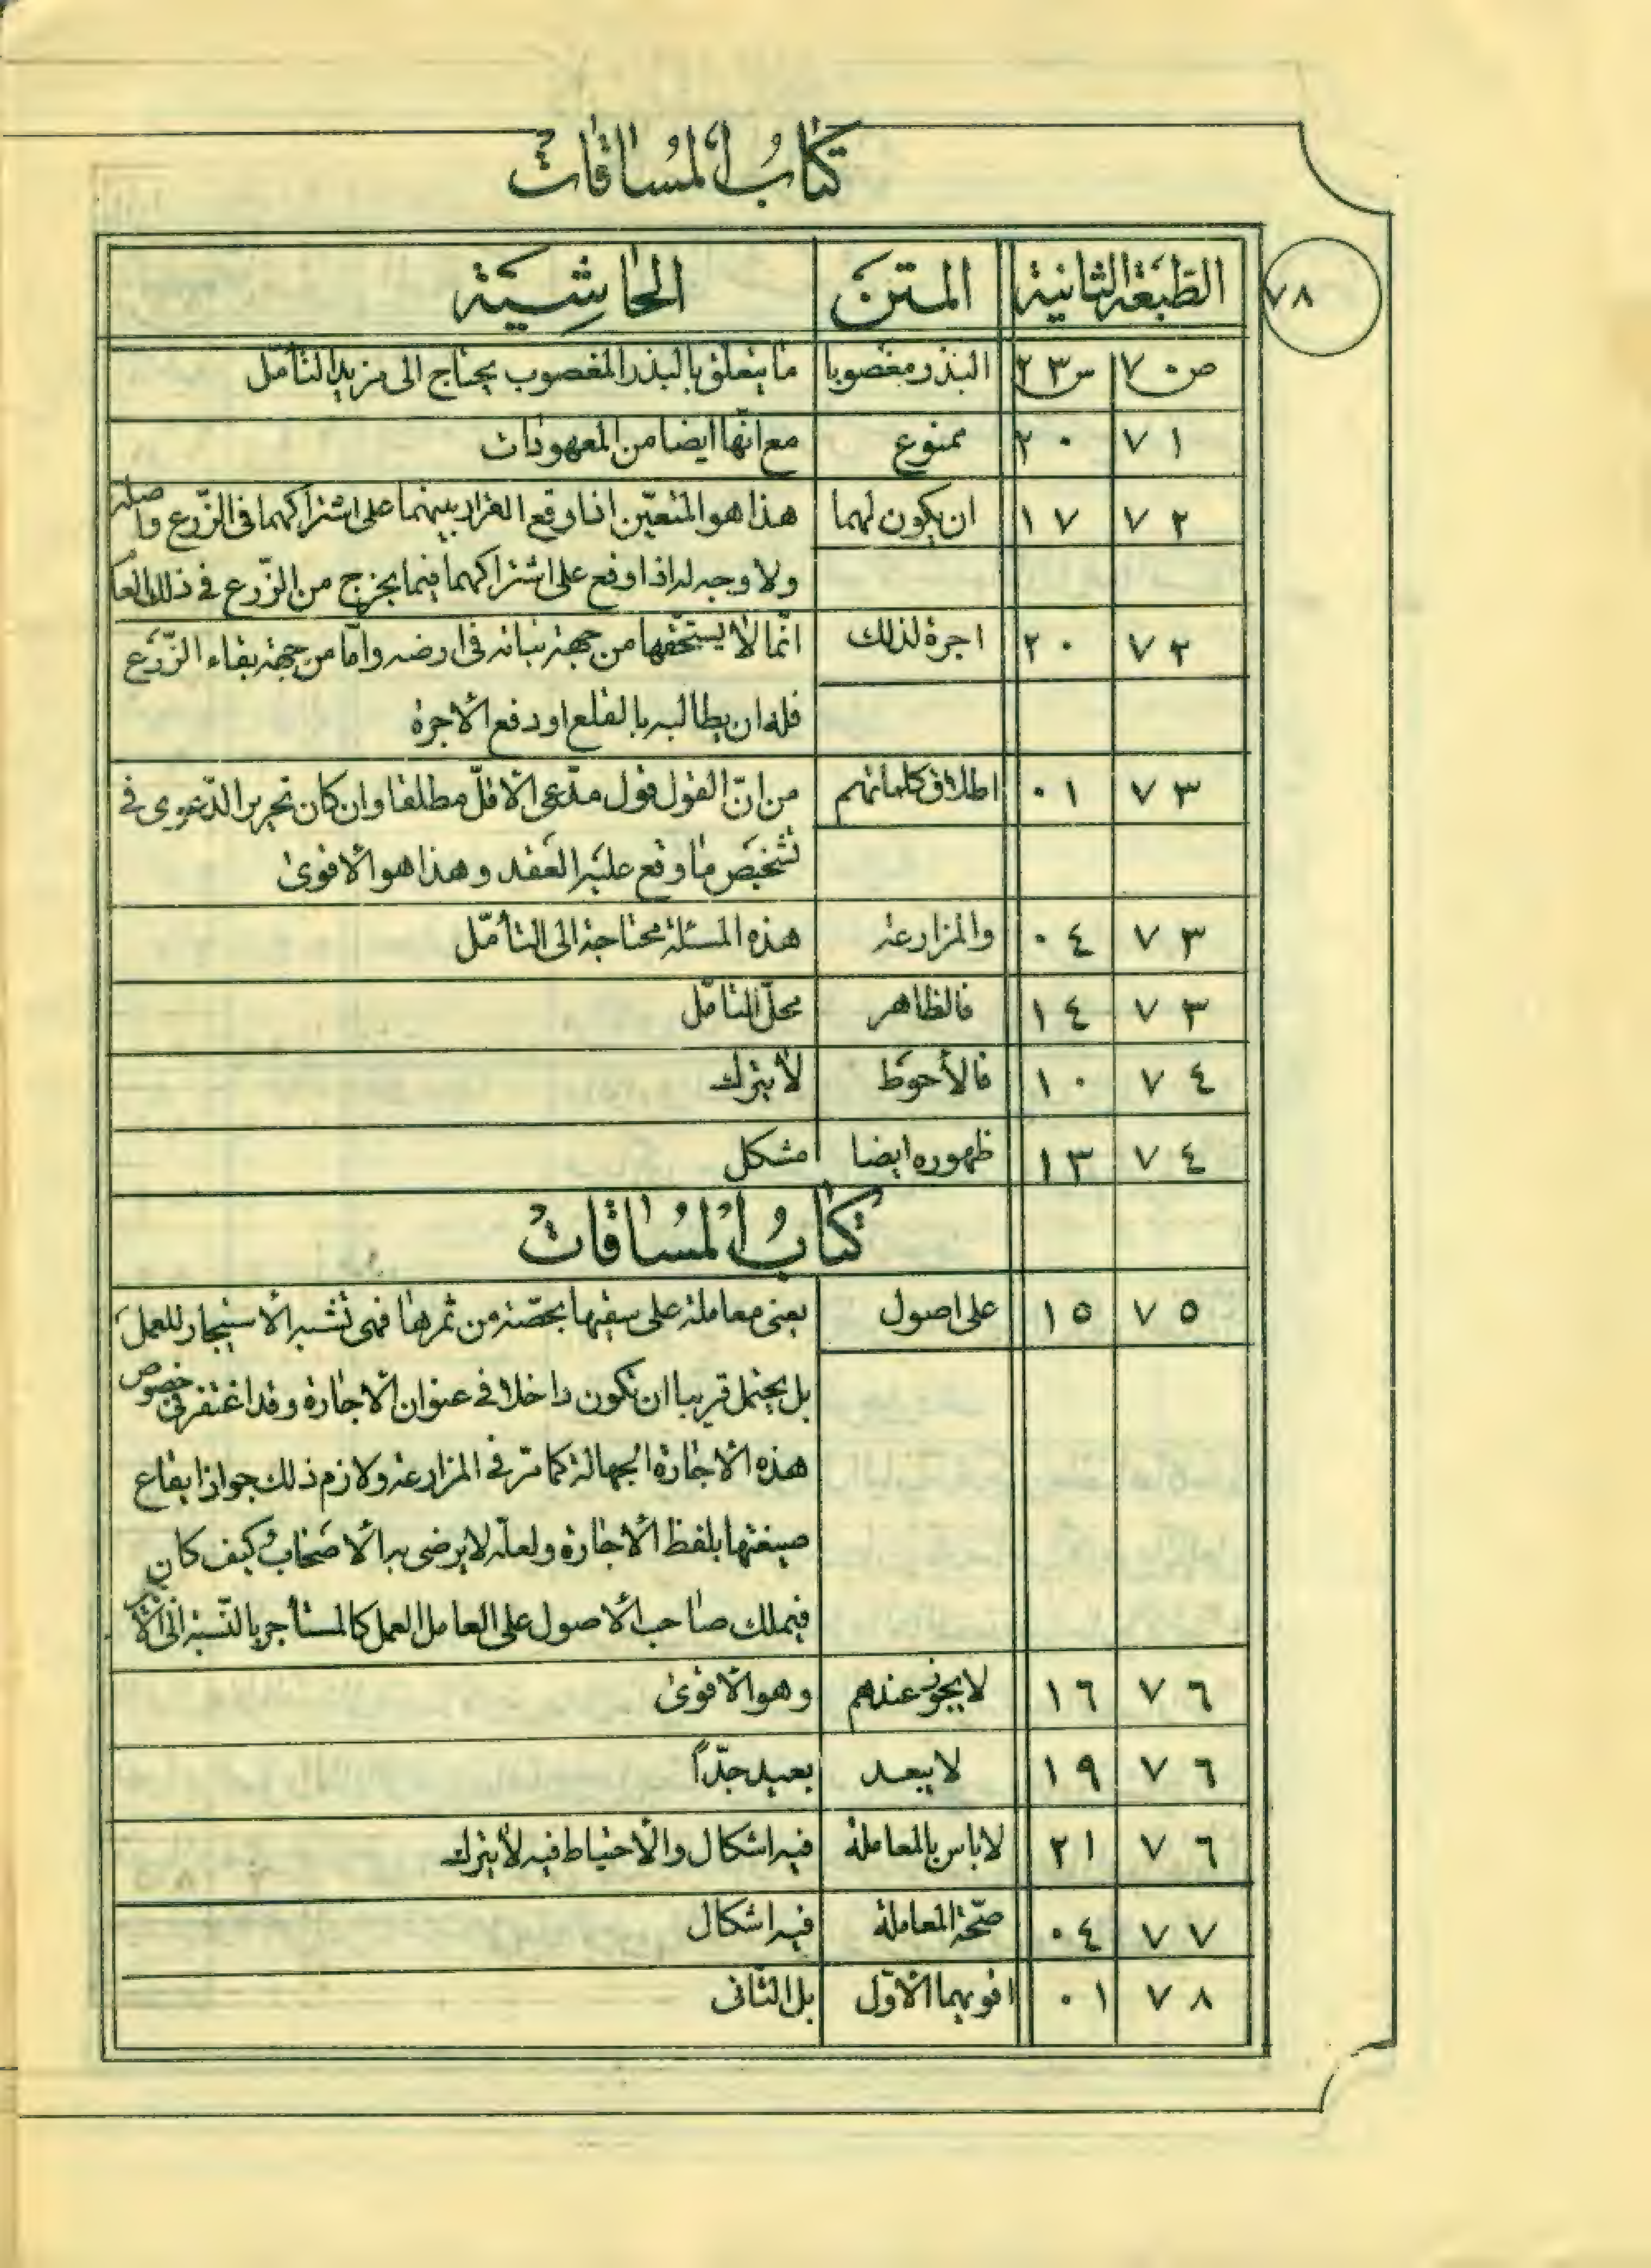 كتاب المساقات
٧٨
الطبعة الثانية المتن الحاشية
ص ٧٠ س ٢٣ البذر مغصوبا ما يتعلق بالبذر المغصوب يحتاج الى مزيد التأمّل
٧١ ٢٠ ممنوع مع انّها ايضا من المعهودات
٧٢ ١٧ ان يكون لهما هذا هو المتعيّن اذا وقع القرار بينهما على اشتراكهما فى الزّرع واصله
ولا وجه له اذا وقع على اشتراكهما فيما يخرج من الزّرع فى ذلك العا
٧٢ ٢٠ اجرة لذلك انّما لا يستحقّها من جهة نباته فى ارضه وامّا من جهة بقاء الزّرع
فله ان يطالبه بالقلع او دفع الاجرة
٧٣ ٠١ اطلاق كلماتهم من انّ القول قول مدّعى الاقلّ مطلقا وان كان تحرير الدّعوى فى
تشخيص ما وقع عليه العقد وهذا هو الاقوى
٧٣ ٠٤ والمزارعة هذه المسئلة محتاجة الى التأمّل
٧٣ ١٤ فالظاهر محلّ التأمّل
٧٤ ١٠ فالأحوط لا يترك
٧٤ ١٣ ظهوره ايضا مشكل
كتاب المساقات
٧٥ ١٥ على اصول يعنى معاملة على سقيها بحصّة من ثمرها فهى تشبه الاستيجار للعمل
بل يحتمل قريبا ان تكون داخلا فى عنوان الاجارة وقد اغتفر فى خصوص
هذه الاجارة الجهالة كما مرّ فى المزارعة ولازم ذلك جواز ايقاع
صيغتها بلفظ الاجارة ولعلّه لا يرضى به الاصحاب كيف كان
فيملك صاحب الاصول على العامل العمل كالمستأجر بالنّسبة الى
٧٦ ١٦ لا يجوز عندهم وهو الاقوى
٧٦ ١٩ لا يبعد بعيد جدّاً
٧٦ ٢١ لا باس بالمعاملة فيه اشكال والاحتياط فيه لا يترك
٧٧ ٠٤ صحّة المعاملة فيه اشكال
٧٨ ٠١ اقويهما الاوّل بل الثّانى